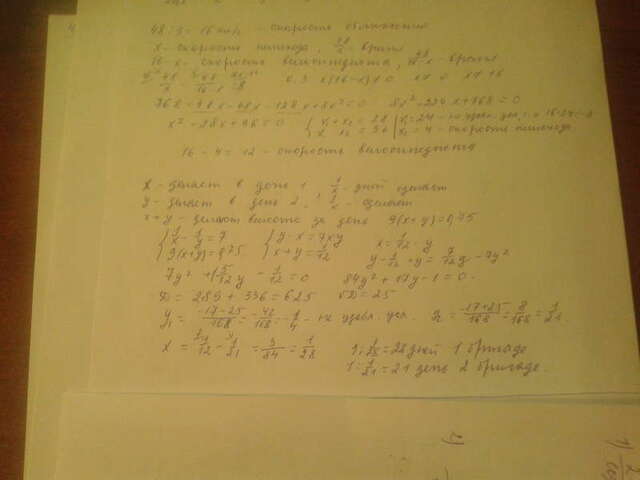 48:3=16 км/ч - скорость сближения
x - скорость пешехода, 48/x - время
16-x - скорость велосипедиста, 48/16-x - время
x≠0 x≠16
768-48x-48x-128x+8x²=0 8x²-224x+768=0
x²-28x+96=0 { x₁+x₂=28 x₁ x₂=96 | x₁=24 - не удовл. усл. x₂=4 - скорость пешехода
16-4=12 - скорость велосипедиста
x - делает в день 1, 1/x - дней сделает
y - делает в день 2,
x+y - делают вместе за день 9(x+y)=0,75
{ 1/x - 1/y = 7 { y-x=7xy x=1/12-y
9(x+y)=0,75 x+y=1/12 y-1/12+y=7/12y-7y²
7y²+1 5/12y-1/12=0 84y²+17y-1=0
D=289+336=625 √D=25
y₁=-17-25/168=-42/168=-1/4 - не удовл. усл. y₂=-17+25/168=8/168=1/21
x=1/12-1/21=3/84=1/28 1:1/28=28 дней 1 бригада
1:1/21=21 день 2 бригада.